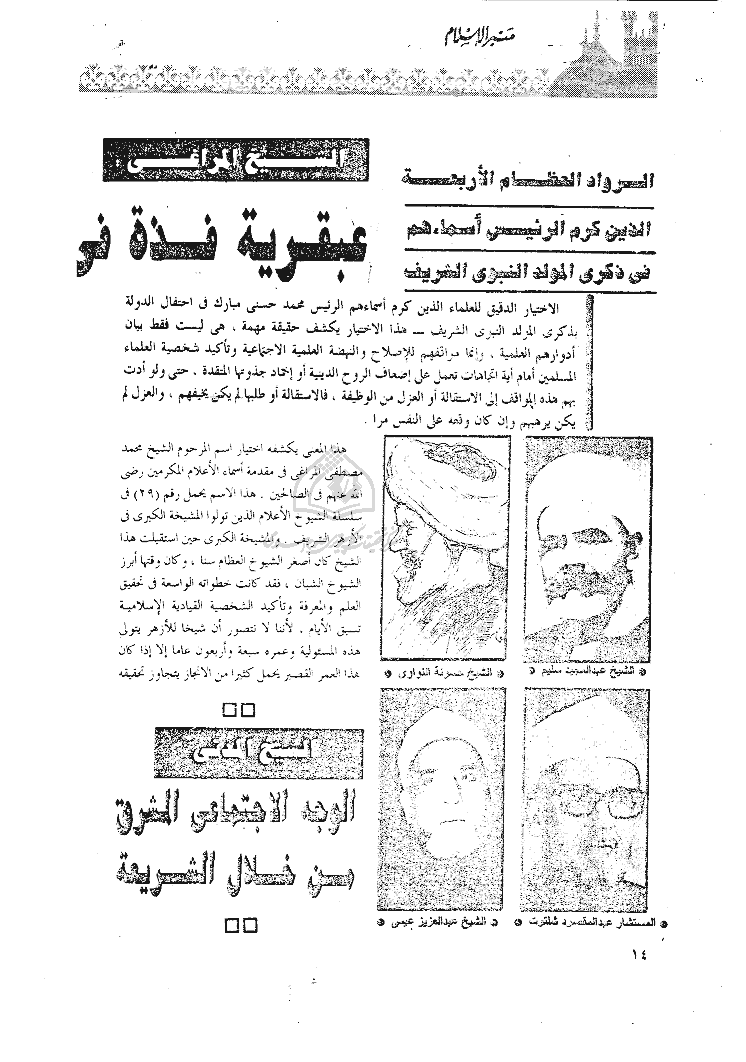 منبر الإسلام
الرواد العظام الأربعة
الذين كرم الرئيس أسماءهم
فى ذكرى المولد النبوى الشريف
الشيخ المراغى :
عبقرية فذة فى
الاختيار الدقيق للعلماء الذين كرم أسماءهم الرئيس محمد حسنى مبارك فى احتفال الدولة
بذكرى المولد النبوى الشريف ــ هذا الاختيار يكشف حقيقة مهمة ، هى ليست فقط بيان
أدوارهم العلمية ، وإنما مواقفهم للإصلاح والنهضة العلمية الاجتماعية وتأكيد شخصية العلماء
المسلمين أمام أية اتجاهات تعمل على إضعاف الروح الدينية أو إخماد جذوتها المتقدة ، حتى ولو أدت
بهم هذه المواقف إلى الاستقالة أو العزل من الوظيفة ، فالاستقالة أو طلبها لم يكن يخيفهم ، والعزل لم
يكن يرهبهم وإن كان وقعه على النفس مرا .
هذا المعنى يكشفه اختيار اسم المرحوم الشيخ محمد
مصطفى المراغى فى مقدمة أسماء الأعلام المكرمين رضى
الله عنهم فى الصالحين . هذا الاسم يحمل رقم (٢٩) فى
سلسلة الشيوخ الأعلام الذين تولوا المشيخة الكبرى فى
الأزهر الشريف . والمشيخة الكبرى حين استقبلت هذا
الشيخ كان أصغر الشيوخ العظام سنا ، وكان وقتها أبرز
الشيوخ الشبان ، فقد كانت خطواته الواسعة فى تحقيق
العلم والمعرفة وتأكيد الشخصية القيادية الإسلامية
تسبق الأيام . لأننا لا نتصور أن شيخا للأزهر يتولى
هذه المسئولية وعمره سبعة وأربعون عاما إلا إذا كان
هذا العمر القصير يحمل كثيرا من الانجاز يتجاوز تحقيقه
الشيخ عبدالمجيد سليم
الشيخ حسونة النواوى
الشيخ المدنى
الوجه الاجتماعى المشرق
من خلال الشريعة
المستشار عبدالمقصود شلتوت
الشيخ عبدالعزيز عيسى
١٤